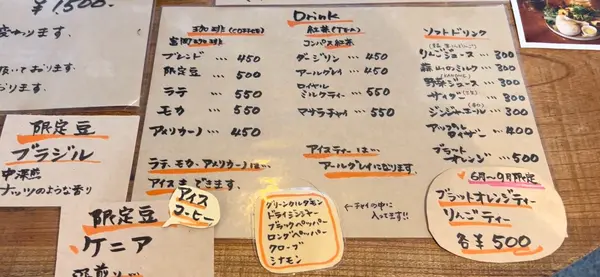 ¥1500-
変わります.
頂いております.
Drink
珈琲(COFFEE)
富岡珈琲
ブレンド … 450
限定豆 … 500
ラテ … 550
モカ … 550
アメリカーノ … 450
ラテ、モカ、アメリカーノは…
アイスもできます.
紅茶(TEA)
コンパス紅茶
ダージリン … 450
アールグレイ … 450
ロイヤル
ミルクティー … 550
マサラチャイ … 550
アイスティーは…
アールグレイになります.
ソフトドリンク
りんごジュース … 300
野菜ジュース … 300
サイダー … 300
ジンジャエール … 300
アップル
タイザー … 400
ブラット
オレンジ … 500
6月〜9月限定
ブラットオレンジティー
りんごティー
各¥500
グリーンカルダモン
ドライジンジャー
ブラックペッパー
ロングペッパー
クローブ
シナモン
←チャイの中に
入ってます!!
限定豆
ブラジル
中深煎
ナッツのような香り
アイス
コーヒー
限定豆
ケニア